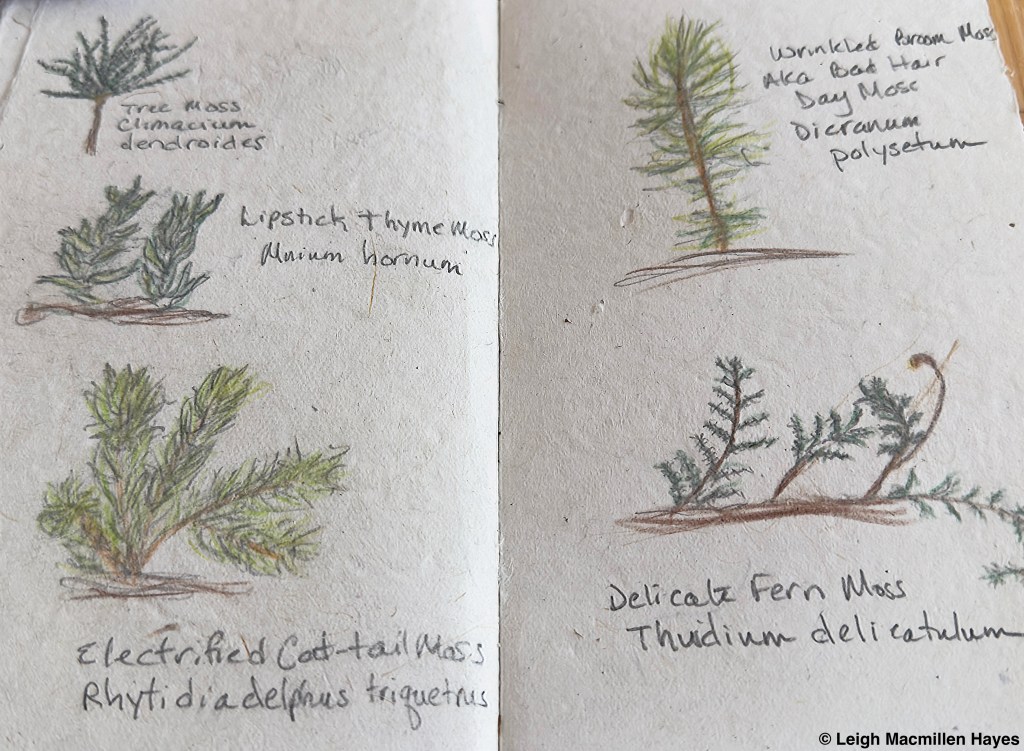 Tree Moss
Climacium
dendroides
Lipstick Thyme Moss
Mnium hornum
Electrified Cat-tail Moss
Rhytidiadelphus triquetrus
Wrinkled Broom Moss
Aka Bad Hair
Day Moss
Dicranum
polysetum
Delicate Fern Moss
Thuidium delicatulum
© Leigh Macmillen Hayes